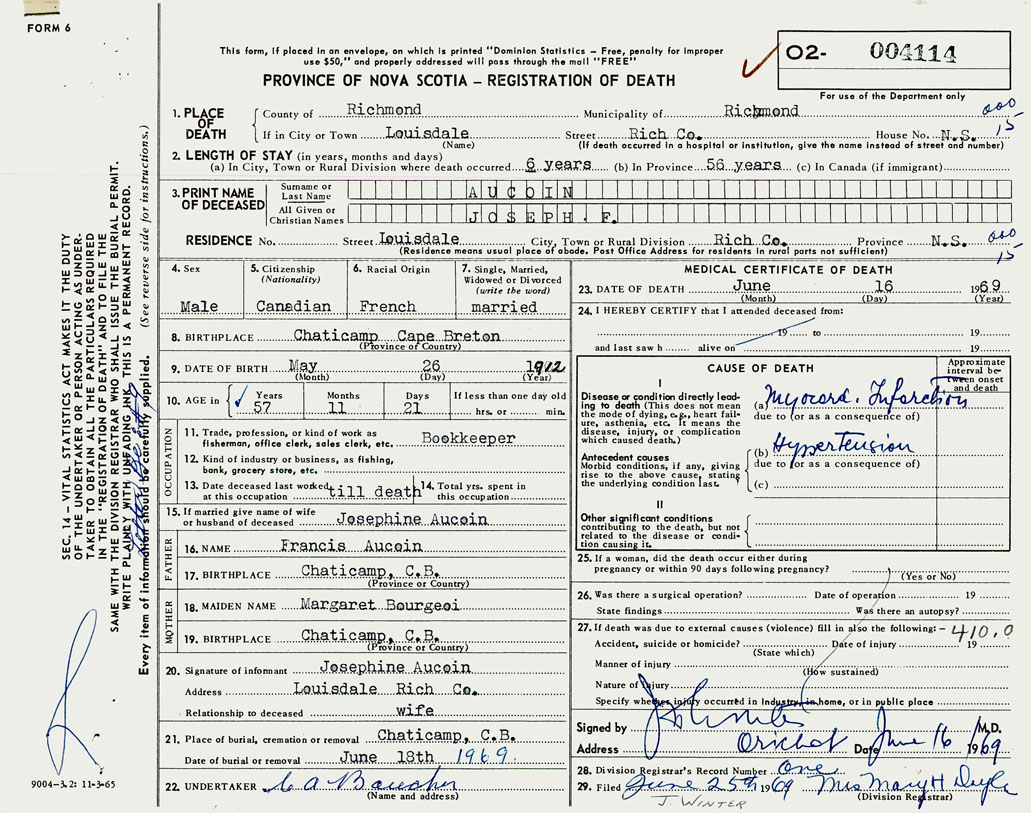 FORM 6
This form, if placed in an envelope, on which is printed "Dominion Statistics – Free, penalty for improper
use $50," and properly addressed will pass through the mail "FREE"
PROVINCE OF NOVA SCOTIA – REGISTRATION OF DEATH
02- 004114
For use of the Department only
1. PLACE OF DEATH
County of Richmond Municipality of Richmond
000
15
If in City or Town Louisdale Street Rich Co. House No. N.S.
(Name) (If death occurred in a hospital or institution, give the name instead of street and number)
2. LENGTH OF STAY (in years, months and days)
(a) In City, Town or Rural Division where death occurred 6 years (b) In Province 56 years (c) In Canada (if immigrant)
3. PRINT NAME OF DECEASED
Surname or Last Name AUCOIN
All Given or Christian Names JOSEPH F.
RESIDENCE No. Street Louisdale City, Town or Rural Division Rich Co. Province N.S.
000
15
(Residence means usual place of abode. Post Office Address for residents in rural parts not sufficient)
4. Sex
Male
5. Citizenship
(Nationality)
Canadian
6. Racial Origin
French
7. Single, Married,
Widowed or Divorced
(write the word)
married
8. BIRTHPLACE Chaticamp Cape Breton
(Province or Country)
9. DATE OF BIRTH May 26 1912
(Month) (Day) (Year)
10. AGE in Years Months Days If less than one day old
57 11 21 hrs. or min.
OCCUPATION
11. Trade, profession, or kind of work as
fisherman, office clerk, sales clerk, etc. Bookkeeper
12. Kind of industry or business, as fishing,
bank, grocery store, etc.
13. Date deceased last worked
at this occupation till death
14. Total yrs. spent in
this occupation
15. If married give name of wife
or husband of deceased Josephine Aucoin
FATHER
16. NAME Francis Aucoin
17. BIRTHPLACE Chaticamp, C.B.
(Province or Country)
MOTHER
18. MAIDEN NAME Margaret Bourgeoi
19. BIRTHPLACE Chaticamp, C.B.
(Province or Country)
20. Signature of informant Josephine Aucoin
Address Louisdale Rich Co.
Relationship to deceased wife
21. Place of burial, cremation or removal Chaticamp, C.B.
Date of burial or removal June 18th 1969
22. UNDERTAKER C A Boucher
(Name and address)
MEDICAL CERTIFICATE OF DEATH
23. DATE OF DEATH June 16 1969
(Month) (Day) (Year)
24. I HEREBY CERTIFY that I attended deceased from:
19 to 19
and last saw h alive on 19
CAUSE OF DEATH
Approximate
interval be-
tween onset
and death
I
Disease or condition directly lead-
ing to death (This does not mean
the mode of dying, e.g., heart fail-
ure, asthenia, etc. It means the
disease, injury, or complication
which caused death.)
(a) Myocard. Infarction
due to (or as a consequence of)
Antecedent causes
Morbid conditions, if any, giving
rise to the above cause, stating
the underlying condition last.
(b) Hypertension
due to (or as a consequence of)
(c)
II
Other significant conditions
contributing to the death, but not
related to the disease or condi-
tion causing it.
25. If a woman, did the death occur either during
pregnancy or within 90 days following pregnancy?
(Yes or No)
26. Was there a surgical operation? Date of operation 19
State findings Was there an autopsy?
27. If death was due to external causes (violence) fill in also the following: – 410.0
Accident, suicide or homicide? Date of injury 19
(State which)
Manner of injury
(How sustained)
Nature of Injury
Specify whether injury occurred in Industry, in home, or in public place
Signed by M.D.
Address Arichat Date June 16 1969
28. Division Registrar's Record Number One
29. Filed June 25th 1969 Mrs Mary H Doyle
(Division Registrar)
J. WINTER
SEC. 14 – VITAL STATISTICS ACT MAKES IT THE DUTY
OF THE UNDERTAKER OR PERSON ACTING AS UNDER-
TAKER TO OBTAIN ALL THE PARTICULARS REQUIRED
IN THE "REGISTRATION OF DEATH" AND TO FILE THE
SAME WITH THE DIVISION REGISTRAR WHO SHALL ISSUE THE BURIAL PERMIT.
WRITE PLAINLY WITH UNFADING INK. THIS IS A PERMANENT RECORD.
Every item of information should be carefully supplied. (See reverse side for instructions.)
9004-3.2: 11-3-65